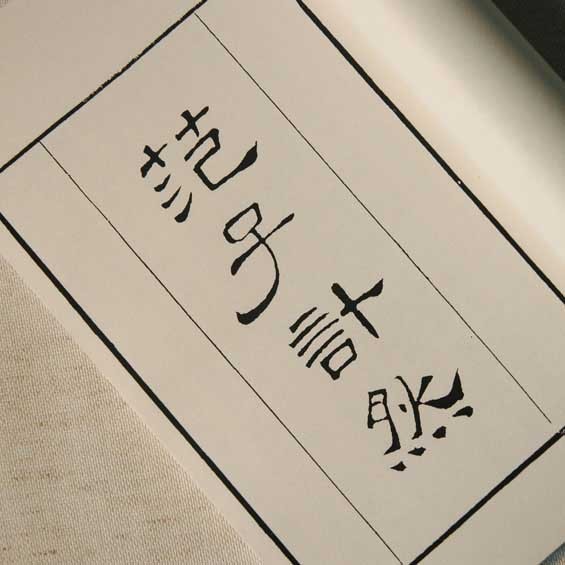 范子計然